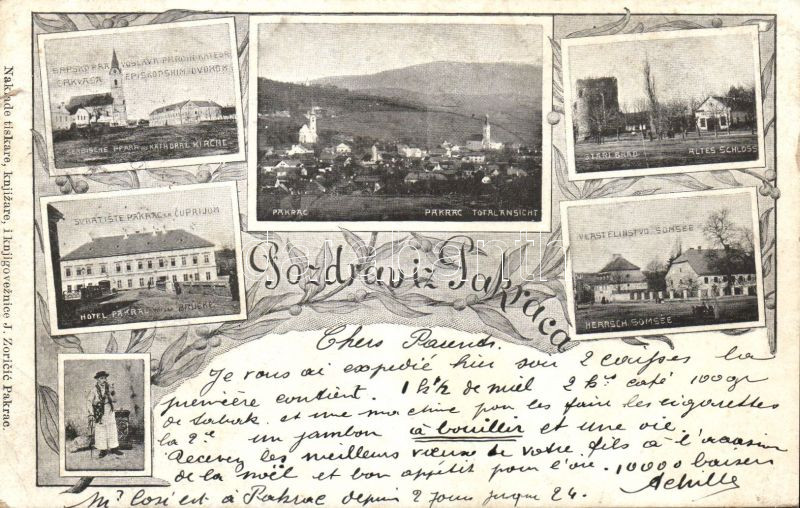 SRPSKO PRAVOSLAVA PAROH. KATEDR.
CRKVA SA EPISKOPSKIM DVOROM
SERBISCHE PFARR u. KATHDRAL KIRCHE
PAKRAC
PAKRAC TOTALANSICHT
STARI GRAD
ALTES SCHLOSS
SVRATIŠTE PAKRAC SA ČUPRIJOM
HOTEL PAKRAC BRÜCKE
VLASTELINSTVO SOMSEE
HERRSCH. SOMSEE
Pozdrav iz Pakraca
Naklade tiskare, knjižare, i knjigovežnice J. Zoričić Pakrac.
Chers Parents.
Je vous ai expedié hier soir 2 caisses la
première contient. 1 k½ de miel 2 k° café 100gr
de tabak et une machine pour les faire les cigarettes
la 2e un jambon à bouiller et une oie.
Recevez les meilleurs vœux de votre fils à l'occasion
de la noël et bon appétit pour l'oie. 10000 baisers
Achille
Mr Cosi est à Pakrac depuis 2 jours jusque 24.